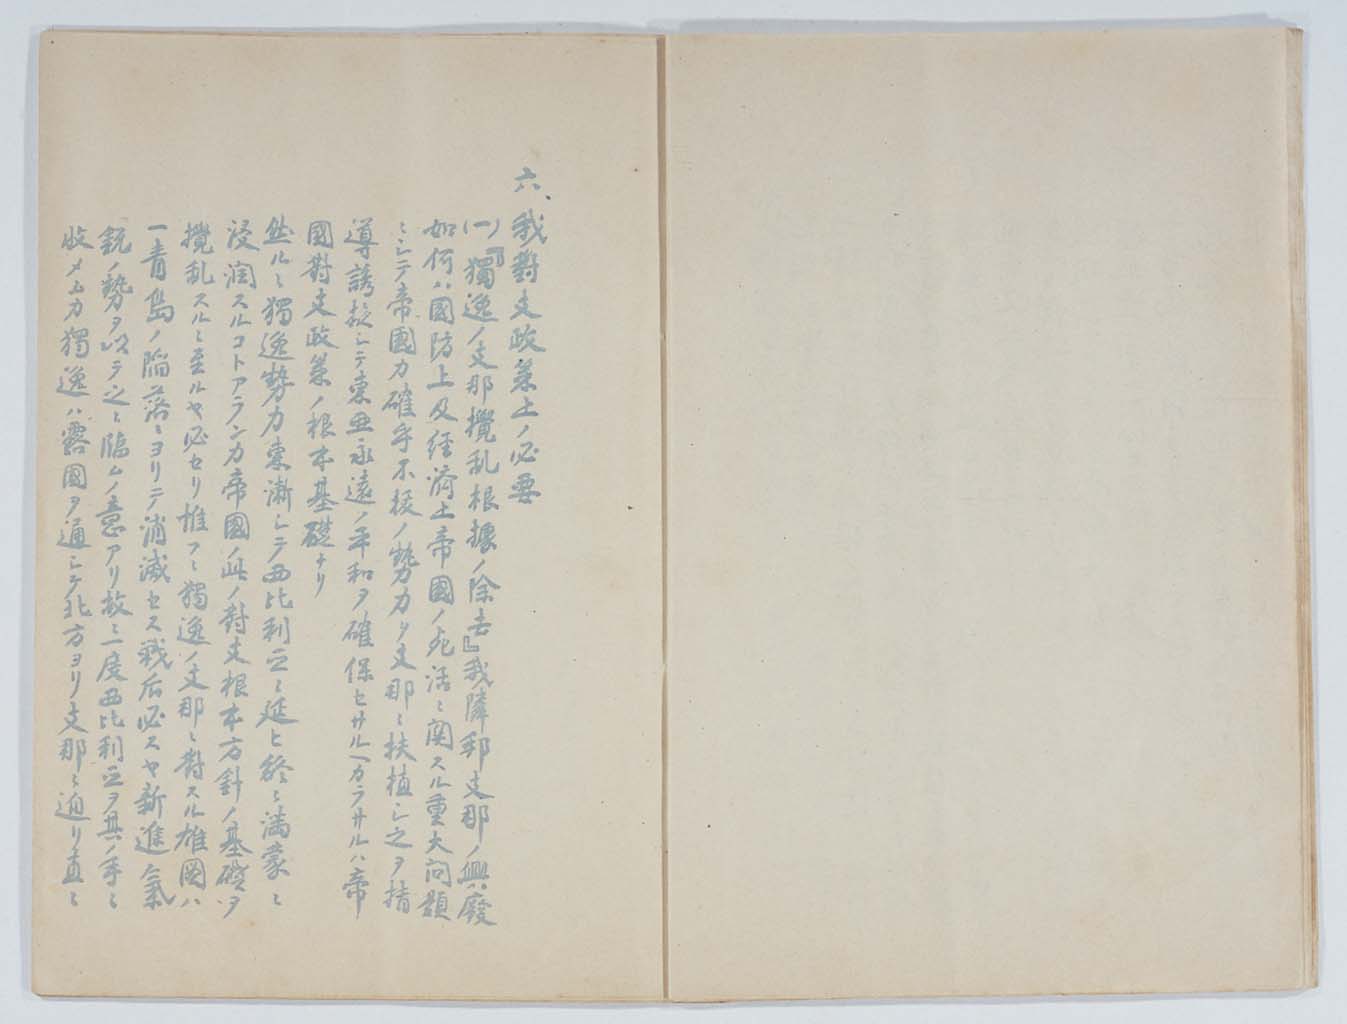 六、我對支政策上ノ必要
(一)『獨逸ノ支那攪乱根據ノ除去』我隣邦支那ノ興廢
如何ハ國防上及経濟上帝國ノ死活ニ関スル重大問題
ニシテ帝國カ確乎不抜ノ勢力ヲ支那ニ扶植シ之ヲ指
導誘掖シテ東亜永遠ノ平和ヲ確保セサルヘカラサルハ帝
國對支政策ノ根本基礎ナリ
然ルニ獨逸勢力東漸シテ西比利亜ニ延ヒ終ニ満蒙ニ
浸潤スルコトアランカ帝國ノ此ノ對支根本方針ノ基礎ヲ
攪乱スルニ至ルヤ必セリ惟フニ獨逸ノ支那ニ對スル雄圖ハ
一青島ノ陥落ニヨリテ消滅セス戦后必スヤ新進氣
鋭ノ勢ヲ以テ之ニ臨ムノ意アリ故ニ一度西比利亜ヲ其ノ手ニ
收メムカ獨逸ハ露國ヲ通シテ北方ヨリ支那ニ迫リ直ニ